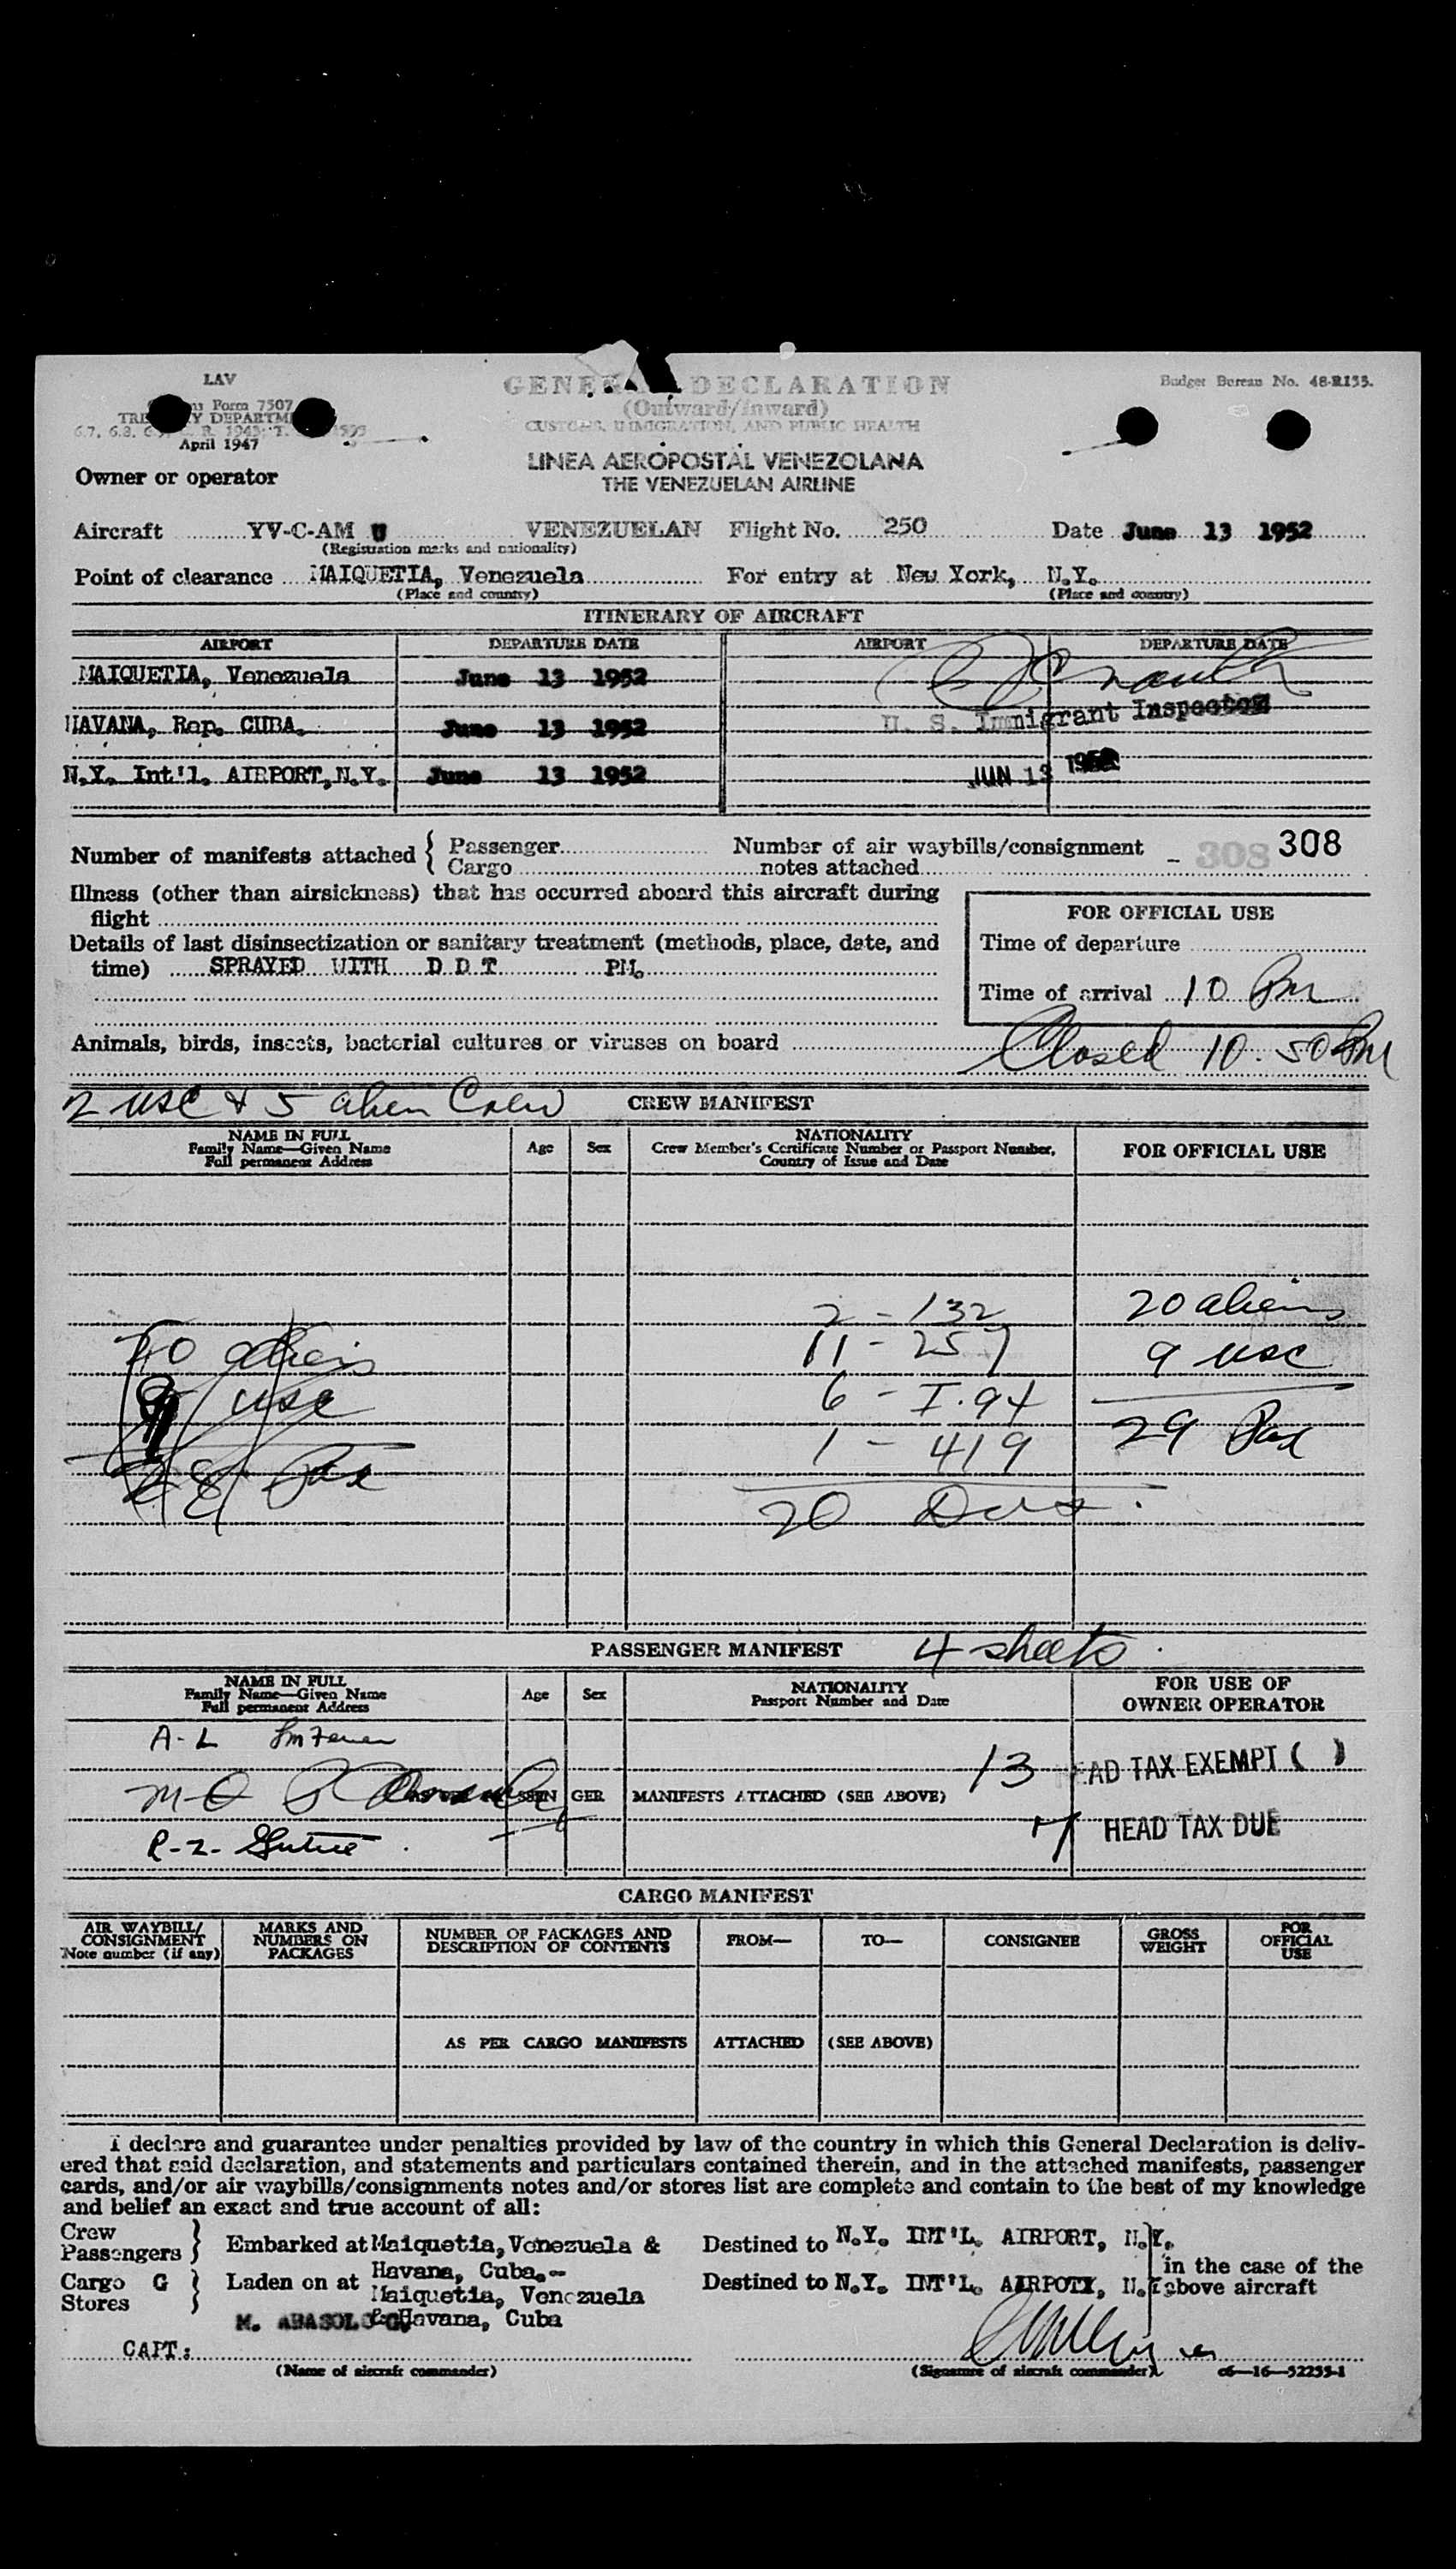 LAV
GENERAL DECLARATION
Budget Bureau No. 48-R155.
Form 7507
(Outward/Inward)
CUSTOMS, IMMIGRATION, AND PUBLIC HEALTH
April 1947
LINEA AEROPOSTAL VENEZOLANA
Owner or operator
THE VENEZUELAN AIRLINE
Aircraft YV-C-AM U VENEZUELAN Flight No. 250 Date June 13 1952
(Registration marks and nationality)
Point of clearance MAIQUETIA, Venezuela For entry at New York, N.Y.
(Place and country) (Place and country)
ITINERARY OF AIRCRAFT
AIRPORT DEPARTURE DATE AIRPORT DEPARTURE DATE
MAIQUETIA, Venezuela June 13 1952
HAVANA, Rep. CUBA. June 13 1952 U. S. Immigrant Inspector
N.Y. Int'l. AIRPORT, N.Y. June 13 1952 JUN 13 1952
Number of manifests attached { Passenger Number of air waybills/consignment - 308 308
Cargo notes attached
Illness (other than airsickness) that has occurred aboard this aircraft during
flight
FOR OFFICIAL USE
Details of last disinsectization or sanitary treatment (methods, place, date, and
Time of departure
time) SPRAYED WITH D D T PM.
Time of arrival 10 Pm
Animals, birds, insects, bacterial cultures or viruses on board Closed 10.50 Pm
2 USC & 5 alien Crew CREW MANIFEST
NAME IN FULL
Family Name—Given Name
Full permanent Address
Age Sex
NATIONALITY
Crew Member's Certificate Number or Passport Number,
Country of Issue and Date
FOR OFFICIAL USE
2 - 132 20 aliens
11 - 257 9 USC
6 - I.94 29 Pax
1 - 419
20 Docs.
aliens
USC
28 Pax
PASSENGER MANIFEST 4 sheets
NAME IN FULL
Family Name—Given Name
Full permanent Address
Age Sex
NATIONALITY
Passport Number and Date
FOR USE OF
OWNER OPERATOR
A-L
13 HEAD TAX EXEMPT ( )
GER MANIFESTS ATTACHED (SEE ABOVE)
HEAD TAX DUE
CARGO MANIFEST
AIR WAYBILL/
CONSIGNMENT
Note number (if any)
MARKS AND
NUMBERS ON
PACKAGES
NUMBER OF PACKAGES AND
DESCRIPTION OF CONTENTS
FROM— TO— CONSIGNEE
GROSS
WEIGHT
FOR
OFFICIAL
USE
AS PER CARGO MANIFESTS ATTACHED (SEE ABOVE)
I declare and guarantee under penalties provided by law of the country in which this General Declaration is deliv-
ered that said declaration, and statements and particulars contained therein, and in the attached manifests, passenger
cards, and/or air waybills/consignments notes and/or stores list are complete and contain to the best of my knowledge
and belief an exact and true account of all:
Crew
Passengers } Embarked at Maiquetia, Venezuela & Destined to N.Y. INT'L. AIRPORT, N.Y.
Havana, Cuba.- in the case of the
Cargo G
Stores } Laden on at Maiquetia, Venezuela Destined to N.Y. INT'L. AIRPOTT, N.Y. above aircraft
& Havana, Cuba
M. ABASOLO G.
CAPT:
(Name of aircraft commander) (Signature of aircraft commander) c6—16—52255-1